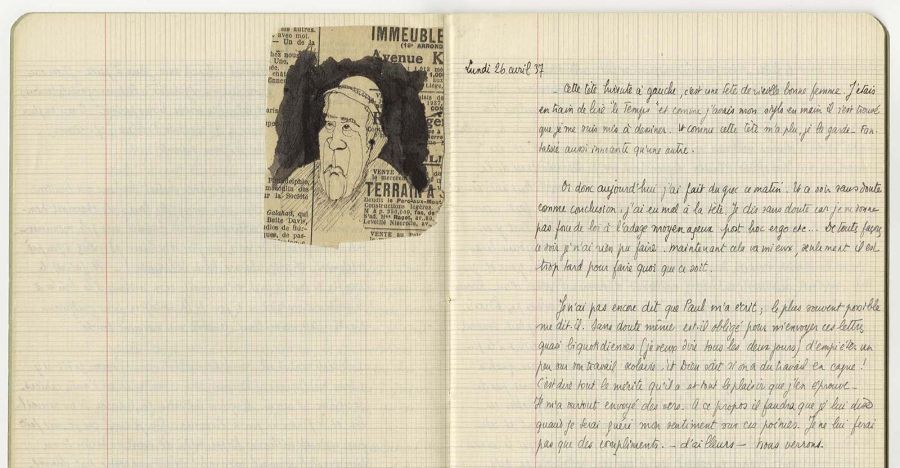 ses autres.
avec moi.
— Un de la
IMMEUBLE
(16e ARROND
Avenue K
chez nous
Une,
TERRAIN A
VENTE
le mercredi
Constructions légères.
Philadelphie,
la Société
Galahad, qui
Bette Davis,
VENTE au
Lundi 26 avril 37
Cette tête hirsute à gauche, c'est une tête de vieille bonne femme. J'étais
en train de lire "le Temps" et comme j'avais mon stylo en main il s'est trouvé
que je me suis mis à dessiner. Et comme cette tête m'a plu, je la garde. Fan-
taisie aussi innocente qu'une autre.
Or donc aujourd'hui j'ai fait du grec ce matin. Et ce soir sans doute
comme conclusion, j'ai eu mal à la tête. Je dis sans doute car je ne donne
pas foule de foi à l'adage moyen ageux post hoc ergo etc... De toute façon
ce soir je n'ai rien pu faire. Maintenant cela va mieux, seulement il est
trop tard pour faire quoi que ce soit.
Je n'ai pas encore dit que Paul m'a écrit; le plus souvent possible
me dit-il. Sans doute même est-il obligé pour m'envoyer ces lettres
quasi biquotidiennes (je veux dire tous les deux jours) d'empiéter un
peu sur son travail scolaire. Et Dieu sait si on a du travail en cagne!
C'est dire tout le mérite qu'il a et tout le plaisir que j'en éprouve —
Il m'a surtout envoyé des vers. A ce propos il faudra que je lui dise
quand je serai guéri mon sentiment sur ces poèmes. Je ne lui ferai
pas que des compliments. — d'ailleurs — nous verrons.